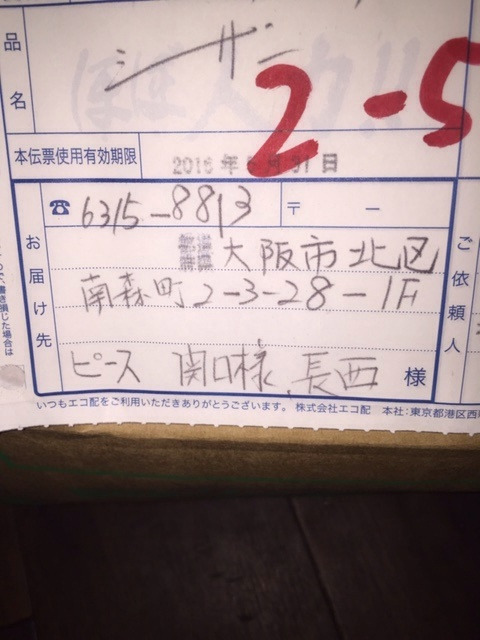 品名
シザー
2-5
本伝票使用有効期限
2016年 月31日
☎ 6315-8813 〒 -
お届け先
大阪市北区
南森町2-3-28-1F
ピース 関口様、長西 様
ご依頼人
いつもエコ配をご利用いただきありがとうございます。 株式会社エコ配 本社:東京都港区西
書き損じた場合は